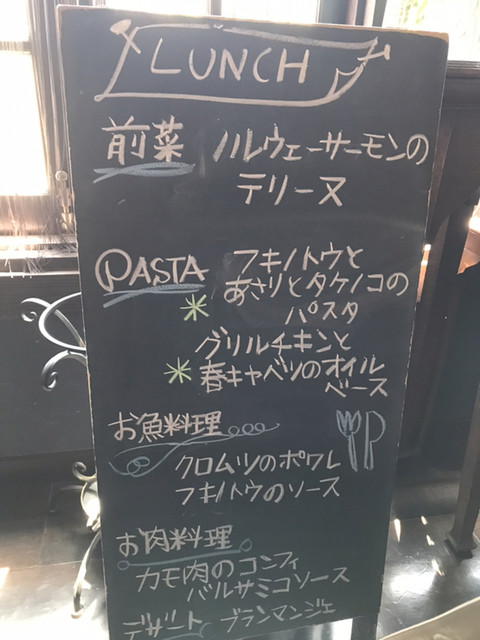 LUNCH
前菜 ノルウェーサーモンの
テリーヌ
PASTA フキノトウと
あさりとタケノコの
＊ パスタ
グリルチキンと
＊ 春キャベツのオイル
ベース
お魚料理
クロムツのポワレ
フキノトウのソース
お肉料理
カモ肉のコンフィ
バルサミコソース
デザート ブランマンジェ